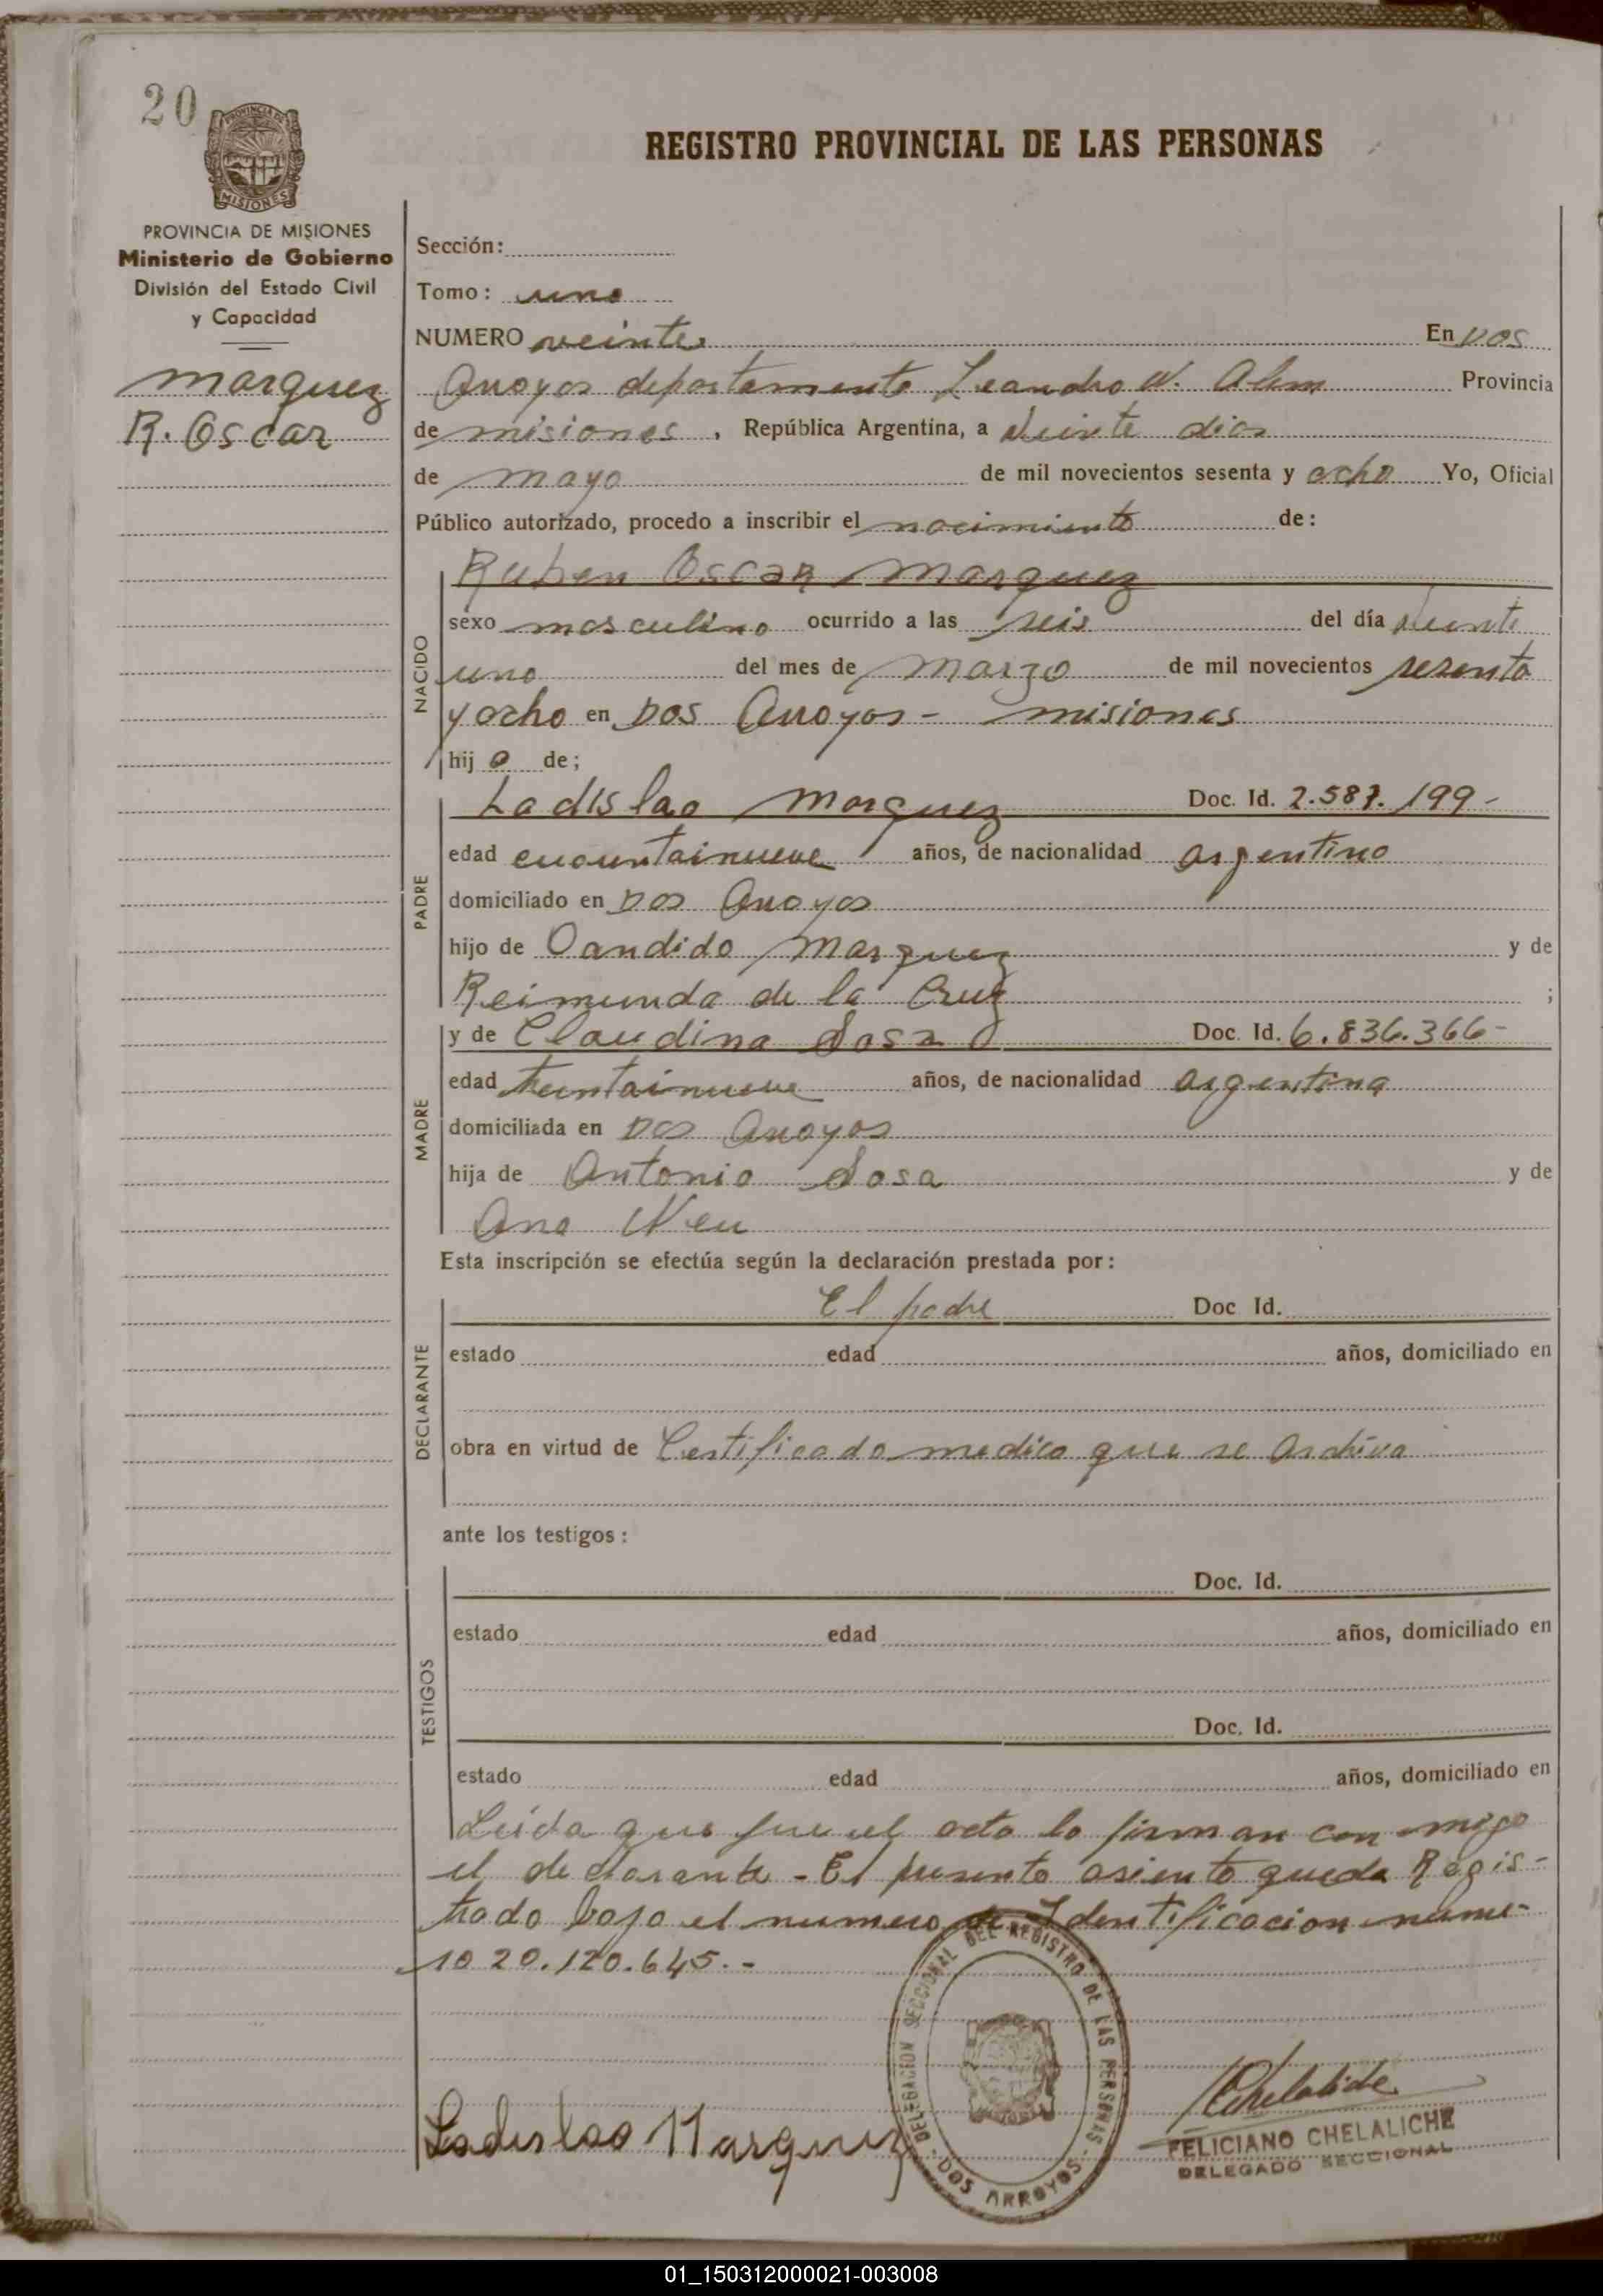 20
PROVINCIA DE
MISIONES
REGISTRO PROVINCIAL DE LAS PERSONAS
PROVINCIA DE MISIONES
Ministerio de Gobierno
División del Estado Civil
y Capacidad
Marquez
R. Oscar
Sección:
Tomo: uno
NUMERO veinte En Dos
Arroyos departamento Leandro N. Alem Provincia
de misiones, República Argentina, a veinte dias
de mayo de mil novecientos sesenta y ocho Yo, Oficial
Público autorizado, procedo a inscribir el nacimiento de:
NACIDO
Ruben Oscar Marquez
sexo masculino ocurrido a las seis del día veinti
uno del mes de Marzo de mil novecientos sesenta
y ocho en Dos Arroyos - misiones
hijo de;
PADRE
Ladislao Marquez Doc. Id. 2.587.199-
edad cucuentainueve años, de nacionalidad argentino
domiciliado en Dos Arroyos
hijo de Candido Marquez y de
Reimunda de la Cruz ;
MADRE
y de Claudina Sosa Doc. Id. 6.836.366-
edad treintainueve años, de nacionalidad argentina
domiciliada en Dos Arroyos
hija de Antonio Sosa y de
Ana Neu
Esta inscripción se efectúa según la declaración prestada por:
DECLARANTE
El padre Doc Id.
estado edad años, domiciliado en
obra en virtud de Certificado medico que se archiva
ante los testigos:
TESTIGOS
Doc. Id.
estado edad años, domiciliado en
Doc. Id.
estado edad años, domiciliado en
Leida que fue el acta la firman con migo
el declarante - El presente asiento queda Regis-
trado bajo el numero de Identificacion nume-
ro 20.120.645.-
DELEGACION SECCIONAL DEL REGISTRO DE LAS PERSONAS
- DOS ARROYOS -
Ladislao Marquez
Chelaliche
FELICIANO CHELALICHE
DELEGADO SECCIONAL
01_150312000021-003008